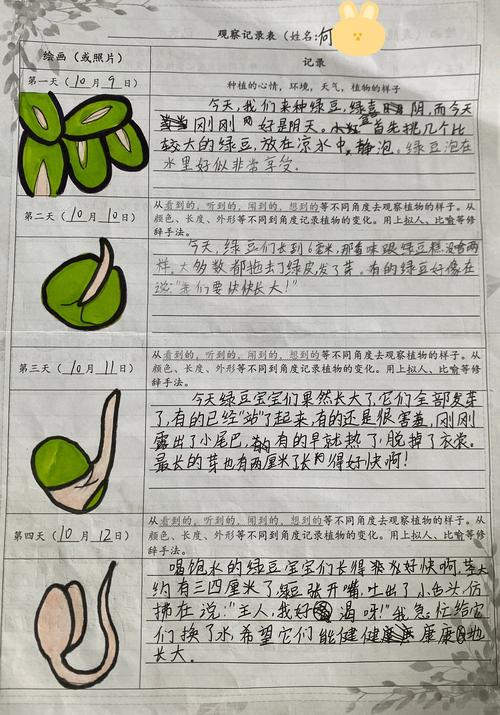 观察记录表（姓名:何
绘画（或照片）
记录
第一天（10月9日）
种植的心情，环境，天气，植物的样子
今天，我们来种绿豆，绿豆喜阴，而今天
刚刚好是阴天。首先挑几个比
较大的绿豆，放在凉水中，静泡。绿豆泡在
水里好似非常享受。
第二天（10月10日）
从看到的，听到的，闻到的，想到的等不同角度去观察植物的样子。从
颜色、长度、外形等不同到角度记录植物的变化。用上拟人、比喻等修
辞手法。
今天，绿豆们长到6毫米，那香味跟绿豆糕没啥两
样，大多数都拖去了绿皮，发了芽。有的绿豆好像在
说:“我们要快快长大!”
第三天（10月11日）
从看到的，听到的，闻到的，想到的等不同角度去观察植物的样子。从
颜色、长度、外形等不同到角度记录植物的变化。用上拟人、比喻等修
辞手法。
今天绿豆宝宝们果然长大了，它们全部发芽
了，有的已经“站”了起来，有的还是很害羞，刚刚
露出了小尾巴，有的早就热了，脱掉了衣裳。
最长的芽也有两厘米了，长得好快啊!
第四天（10月12日）
从看到的，听到的，闻到的，想到的等不同角度去观察植物的样子。从
颜色、长度、外形等不同到角度记录植物的变化。用上拟人、比喻等修
辞手法。
喝饱水的绿豆宝宝们长得来发好快啊，芽大
约有三四厘米了，绿豆张开嘴，吐出了小舌头，仿
拂在说:“主人，我好渴呀!”我急忙给它
们换了水，希望它们能健健康康地
长大。